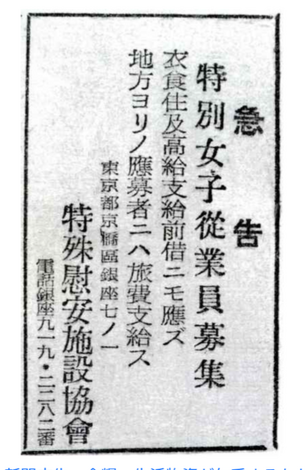 急告
特別女子從業員募集
衣食住及高給支給前借ニモ應ズ
地方ヨリノ應募者ニハ旅費支給ス
東京都京橋區銀座七ノ一
特殊慰安施設協會
電話銀座九一九・二二八二番